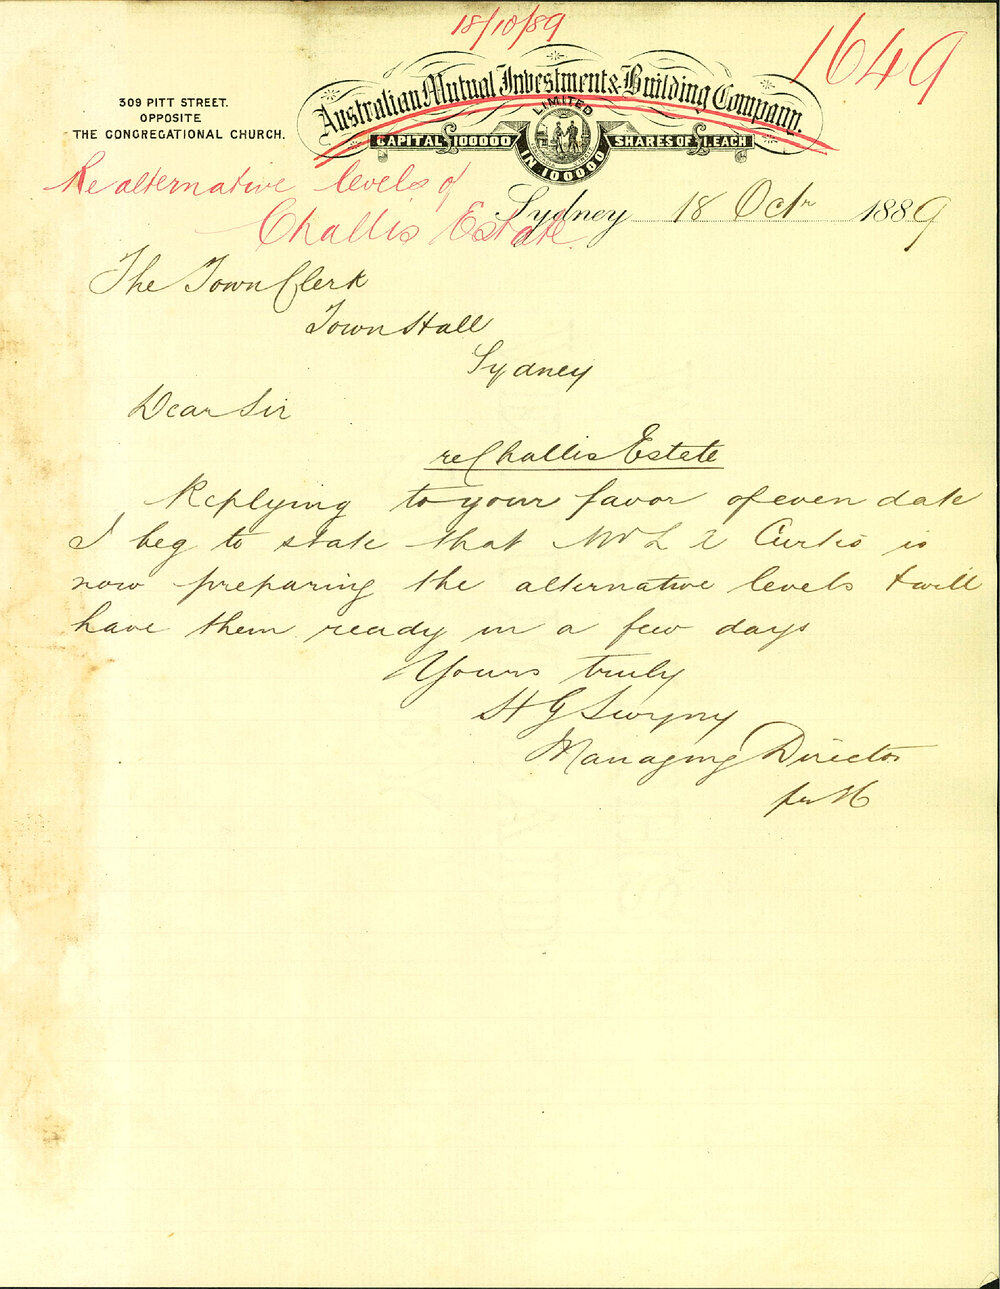 18/10/89
1649
Australian Mutual Investment & Building Company.
LIMITED
309 PITT STREET.
OPPOSITE
THE CONGREGATIONAL CHURCH.
CAPITAL £100000
IN 100000
SHARES OF £1. EACH
Re alternative levels of
Challis Estate
Sydney 18 Octr 1889
The Town Clerk
Town Hall
Sydney
Dear Sir
re Challis Estate
Replying to your favor of even date
I beg to state that Mr L Curtis is
now preparing the alternative levels & will
have them ready in a few days
Yours truly
H G Swyny
Managing Director
per